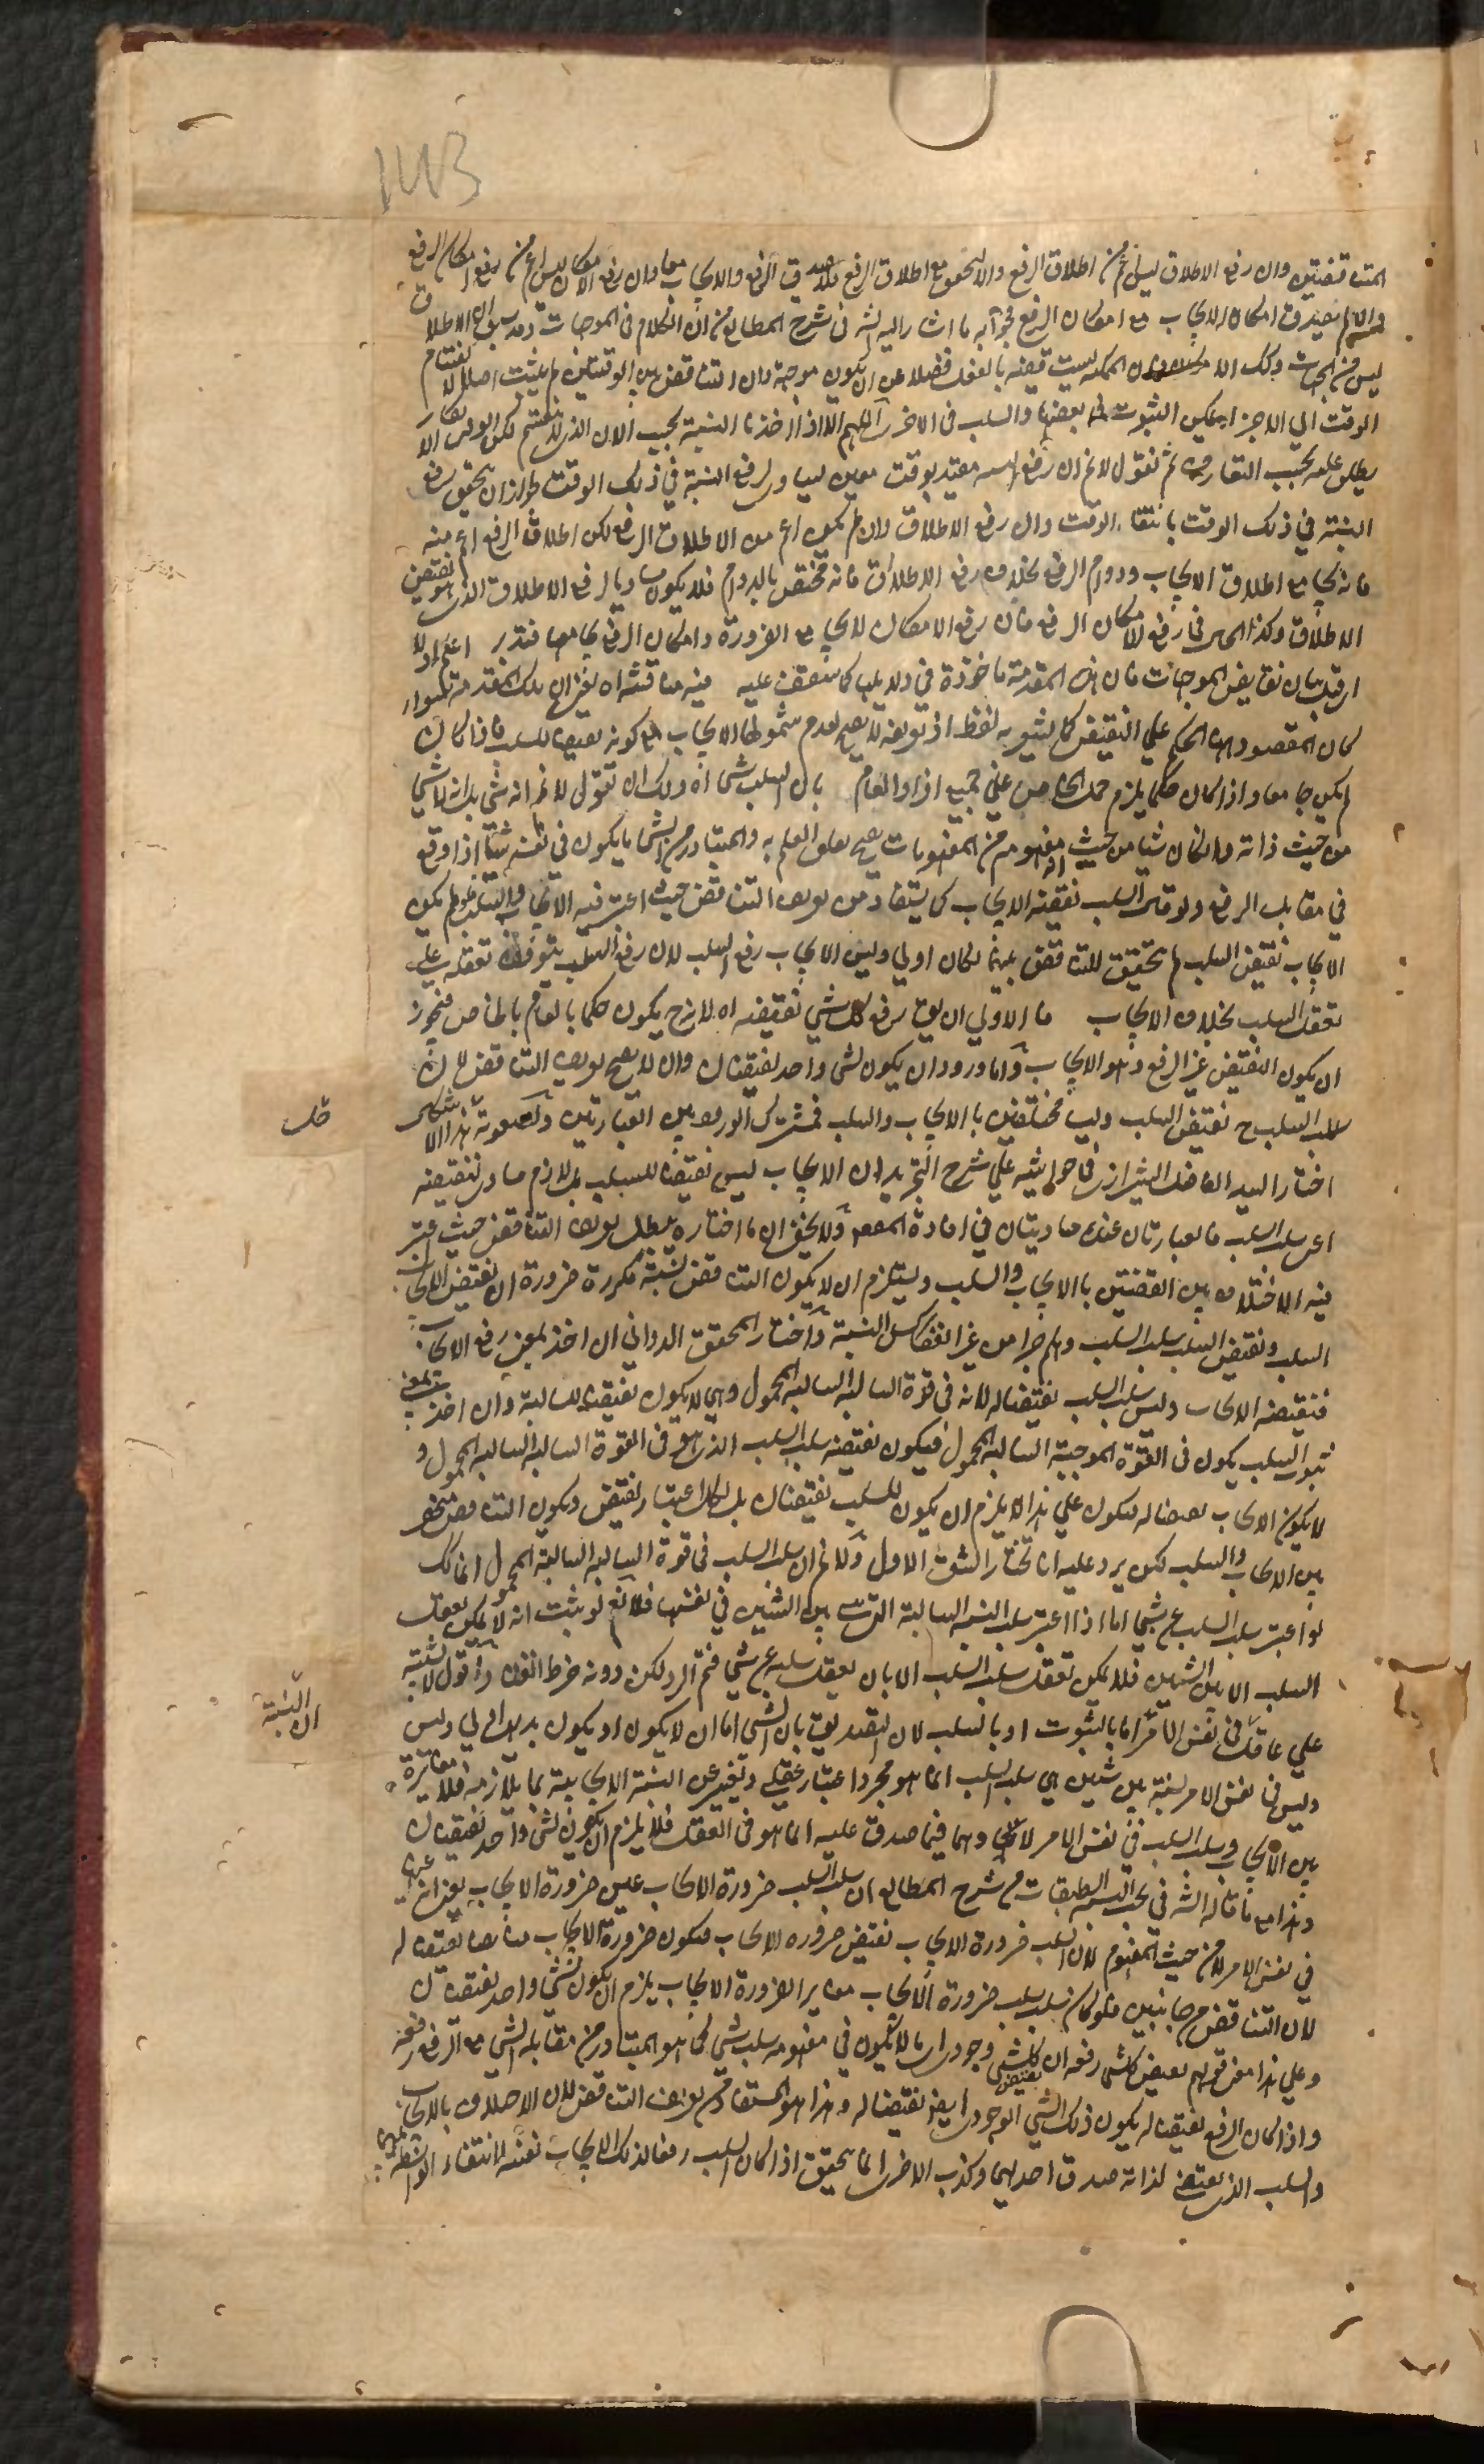 143
المتناقضتين وان رفع الاطلاق ليس اعم من اطلاق الرفع والا لتحقق مع اطلاق الرفع فلا يصدق الرفع والايجاب معا وان رفع الامكان ليس اعم من رفع امكان الرفع
والا لم يصدق امكان الايجاب مع امكان الرفع فجوابه ما اشار اليه الش في شرح المطالع من ان الكلام في الموجهات وقد سبق ان الاطلاق
ليس من الجهات الممكنة ليست قضية بالفعل فضلا عن ان يكون موجهة وان التناقض بين الوقتيتين لم يثبت اصلا لانقسام
الوقت الي الاجزاء فيمكن الثبوت في بعضها والسلب في الاخر اللهم الا اذا اخذنا النسبة بحسب الان الذي لا ينقسم لكن الوقت لا
يطلق عليه بحسب التعارف ثم نقول لا نم ان رفع النسبة مقيد بوقت معين يساوي رفع النسبة في ذلك الوقت لجواز ان يتحقق رفع
النسبة في ذلك الوقت بانتفاء الوقت وان رفع الاطلاق وان لم يكن اعم من الاطلاق الرفع لكن اطلاق الرفع اعم منه
فانه يجامع اطلاق الايجاب ودوام الرفع بخلاف رفع الاطلاق فانه مختص بالدوام فلا يكون مساويا لرفع الاطلاق الذي هو نقيض
الاطلاق وكذا الحال في رفع الامكان الرفع فان رفع الامكان لا يجامع الضرورة وامكان الرفع يجامعها فتدبر اعلم اولا
ان قبل بيان نقايض الموجهات فان هذه المقدمة ماخوذة في دلايلها كما ستقف عليه فيه مناقشة اه يعني ان تلك المقدمة سواء
كان المقصود منها الحكم علي النقيض كما يشير به لفظ او تعريفه لا يصح لعدم شمولها الايجاب مع كونه نقيضا للسلب فاذا كان
لم يكن جامعا واذا كان حكما يلزم حمل الخاص علي جميع افراد العام بان السلب شئ اه ولك ان تقول لا نم انه شئ بل انه لا شئ
من حيث ذاته وان كان شيئا من حيث انه مفهوم من المفهومات يصح تعلق العلم به والمتبادر من الشئ ما يكون في نفسه شيئا اذا وقع
في مقابلة الرفع ولو قال السلب نقيضه الايجاب كما يستفاد من تعريف التناقض حيث اعتبر فيه الايجاب والسلب فلو لم يكن
الايجاب نقيض السلب لم يتحقق التناقض بينهما لكان اولي وليس الايجاب رفع السلب لان رفع السلب يتوقف تعقله علي
تعقل السلب بخلاف الايجاب فالاولي ان يقال رفع كل شئ نقيضه اه لانه ح يكون حكما بالعام بالخاص فيجوز
ان يكون النقيض غير الرفع وهو الايجاب واما ورود ان يكون لشئ واحد نقيضان وان لا يصح تعريف التناقض لان
سلب السلب ح نقيض السلب وليسا مختلفين بالايجاب والسلب فمشترك الورود بين العبارتين ولصعوبة هذا الاشكال
اختار السيد الفاضل الشيرازي في حواشيه علي شرح التجريد ان الايجاب ليس نقيضا للسلب بل لازم مساو لنقيضه
اعني سلب السلب فالعبارتان عنده متساويتان في افادة المقصود ولا يخفي ان ما اختاره يبطل تعريف التناقض حيث اعتبر
فيه الاختلاف بين القضيتين بالايجاب والسلب ويستلزم ان لا يكون التناقض نسبة مكررة ضرورة ان نقيض الايجاب
السلب ونقيض السلب سلب السلب وهلم جرا من غير انعكاس النسبة واختار المحقق الدواني ان اخذ بمعني رفع الايجاب
فنقيضه الايجاب وليس سلب السلب نقيضا له لانه في قوة السالبة السالبة المحمول وهي لا يكون نقيضا للسالبة وان اخذ بمعني
ثبوت السلب يكون في القوة الموجبة السالبة المحمول فيكون نقيضه سلب السلب الذي هو في القوة السالبة السالبة المحمول و
لا يكون الايجاب نقيضا له فيكون علي هذا لا يلزم ان يكون للسلب نقيضان بل لكل اعتبار نقيض ويكون التناقض منحصر
بين الايجاب والسلب لكن يرد عليه انا نختار الشق الاول ولا نم ان سلب السلب في قوة السالبة السالبة المحمول انما ذلك
لو اعتبر سلب السلب عن شئ اما اذا اعتبر سلب النسبة السالبة التي بين الشيئين في نفسها فلا نعم لو يثبت انه لا يمكن تعقل
السلب الا بين الشيئين فلا يمكن تعقل سلب السلب الا بان يعقل سلبه عن شئ فتم الرد لكن دونه خرط القتاد واقول لا شبهة
علي عاقل في نفس الامر اما بالثبوت او بالسلب لان التصديق بان الشئ اما ان لا يكون او يكون بديهي اولي وليس
وليس في نفس الامر نسبة بين شيئين هي سلب السلب انما هو مجرد اعتبار عقلي وتعبير عن النسبة الايجابية بما يلازمه فلا مغايرة
بين الايجاب وسلب السلب في نفس الامر لا فيهما صدق عليه انما هو في العقل فلا يلزم ان يكون لشئ واحد نقيضان
وهذا ما قاله الش في بحث الطبقات من شرح المطالع ان سلب السلب ضرورة الايجاب عين ضرورة الايجاب يعني انه عينه
في نفس الامر لا من حيث المفهوم لان سلب ضرورة الايجاب نقيض ضرورة الايجاب فيكون ضرورة الايجاب ايضا نقيضا له
لان التناقض من جانبين فلو كان سلب سلب ضرورة الايجاب مغايرا لضرورة الايجاب يلزم ان يكون لشئ واحد نقيضان
وعلي هذا معني قولهم نقيض كل شئ رفعه ان نقيض كل شئ وجودي اي ما لا يكون في مفهومه سلب شئ كما هو المتبادر من مقابلة الشئ مع الرفع رفعه
واذا كان الرفع نقيضا له يكون ذلك الشئ الوجودي ايضا نقيضا له وهذا هو المستفاد من تعريف التناقض لان الاختلاف بالايجاب
والسلب الذي يقتضي لذاته صدق احديهما وكذب الاخري انما يتحقق اذا كان السلب رفعا لذلك الايجاب نفسه لانتفاء الواسطة
ان النسبة